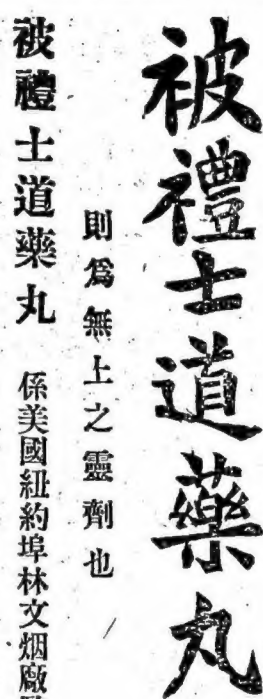 被禮士道藥丸
則爲無上之靈劑也
被禮士道藥丸 係美國紐約埠林文烟廠